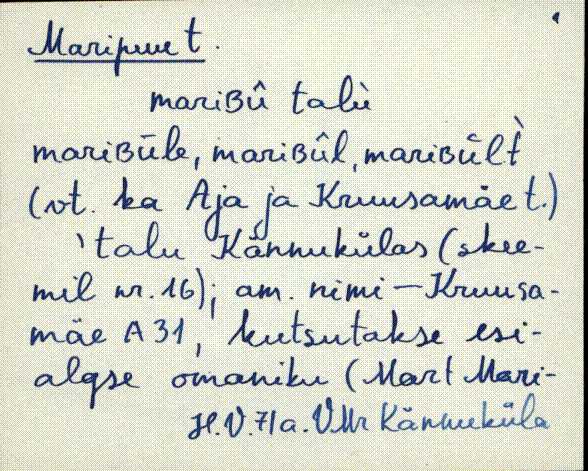 Maripuu t.
mariBû talù
mariBūle, mariBûl, mariBûlt̀
(vt. ka Aja ja Kruusamäe t.)
'talu Kännukülas (skee-
mil nr. 16); am. nimi — Kruusa-
mäe A 31, kutsutakse esi-
algse omaniku (Mart Mari-
H.V. 71a. VMr Kännuküla